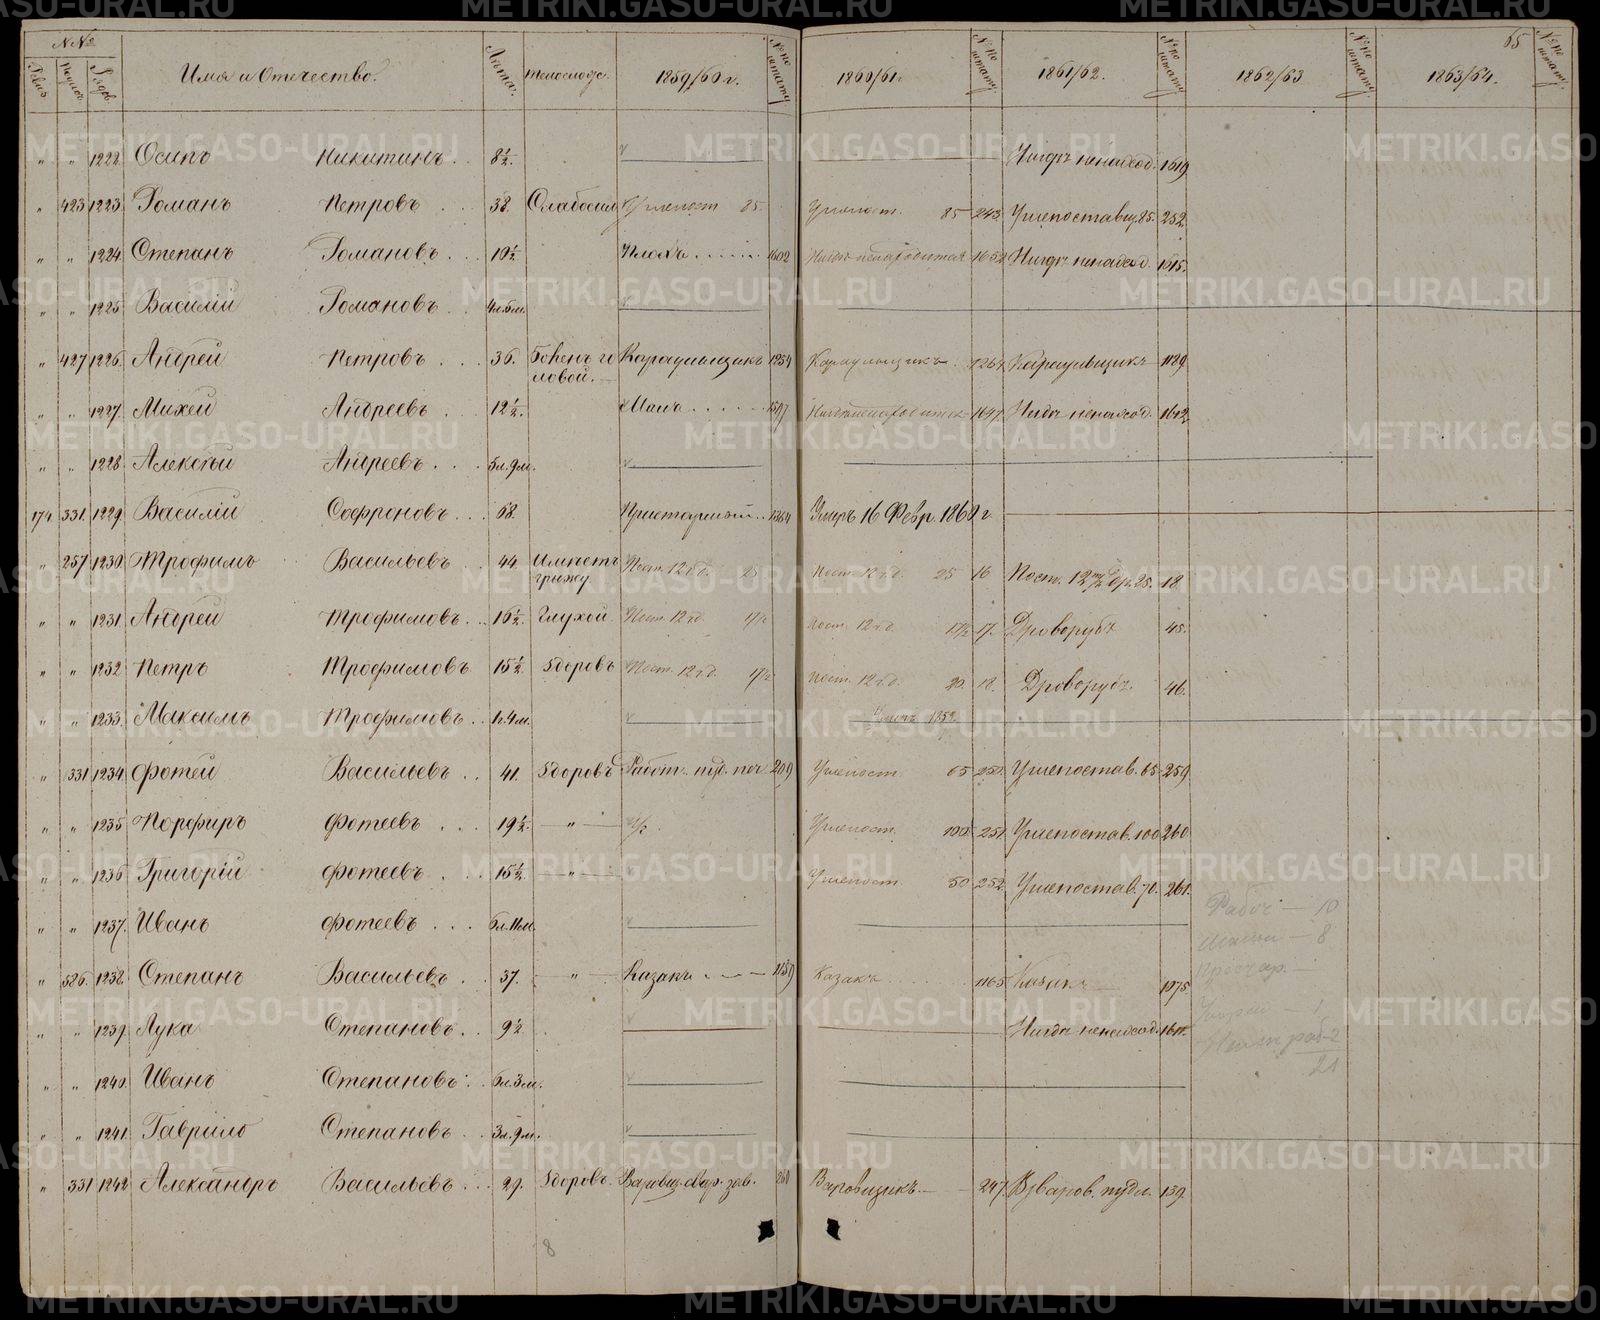 №№ 65
Ревиз Посем. Рядов. Имя и Отечество. Лета. Телослож. 1859/60 г. №по штату 1860/61 г. №по штату 1861/62. №по штату 1862/63 №по штату 1863/64. №по штату.
" " 1222 Осипъ Никитинъ . . 8½. Нигдѣ ненаход. 1619
" 423 1223 Романъ Петровъ . . 38. Слабосил. Углепост 85. Углепост. 85 243 Углепоставщ. 85. 252.
" " 1224. Степанъ Романовъ . . 10½. 1602 Нигдѣ 1652 Нигдѣ ненаход. 1615.
" " 1225 Василій Романовъ . . 4л.5м.
" 427 1226. Андрей Петровъ . . 36. Боленъ головой. Караульщикъ 1254 Караульщикъ . 1264 Караульщикъ 1129
" " 1227. Михей Андреевъ . . 12½. Малъ . . . . 1597 1697 Нигдѣ ненаход. 1612
" " 1228. Алексѣй Андреевъ . . . 5л.9м.
174 331. 1229. Василій Софроновъ . . . 68. Престарелой . . 1364 Умеръ 16 Февр. 1860 г.
" 257 1230. Трофимъ Васильевъ . . . 44. Имѣетъ грыжу Пост. 12 г.д. 25 Пост. 12 г.д. 25 16 Пост. 12 др. 25. 18.
" " 1231. Андрей Трофимовъ . . 16½. Глухой Пост. 12 г.д. 17½ Пост. 12 г.д. 17½ 17. Дроворубъ 45.
" " 1232 Петръ Трофимовъ 15½ Здоровъ Пост. 12 г.д. 17½ Пост. 12 г.д. 20. 18. Дроворубъ. 46.
" " 1233. Максимъ Трофимовъ . . 1г.4м.
" 331 1234. Фотей Васильевъ . . 41. Здоровъ Работ. пуд. печ. 209 Углепост 65 250 Углепостав. 65 259
" " 1235 Порфиръ Фотеевъ . . . 19½. " Углепост. 100 251 Углепостав. 100 260
" " 1236 Григорій Фотеевъ . . . 15½. " Углепост. 50 252. Углепостав. 70. 261.
Рабоч — 10
" " 1237. Иванъ Фотеевъ . . . 6л.11м.
— 8
" 586. 1238. Степанъ Васильевъ . . 37. " Казакъ . . . 1159 Казакъ . . . . . 1165 Казакъ 1075
Престар. —
" " 1239 Лука Степановъ . . 9½ Нигдѣ ненаход. 1611.
— 1
" " 1240. Иванъ Степановъ . . 6л.3м.
21
" " 1241. Гаврило Степановъ . . 3л.9м.
" 331 1242 Александръ Васильевъ . . . 29. Здоровъ. 261 Варовщикъ — 247 139.
8
METRIKI.GASO-URAL.RU